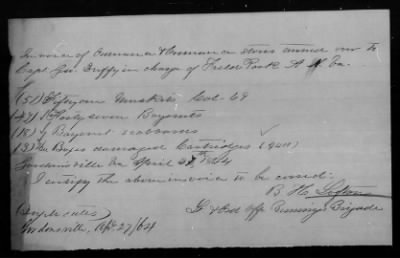 Invoice of Ordnance & Ordnance stores turned over to
Capt Jno. Griffy in charge of Field Park A N Va.
(51) Fifty one Muskets Cal. 69
(47) Forty seven Bayonets
Bayonet scabbards
Boxes damaged Cartridges
Gordonsville Va April 27th 1864
I certify the above invoice to be correct:
B. H.
Ord Off Brigade
(Duplicates)
Gordonsville, Apl. 27/64